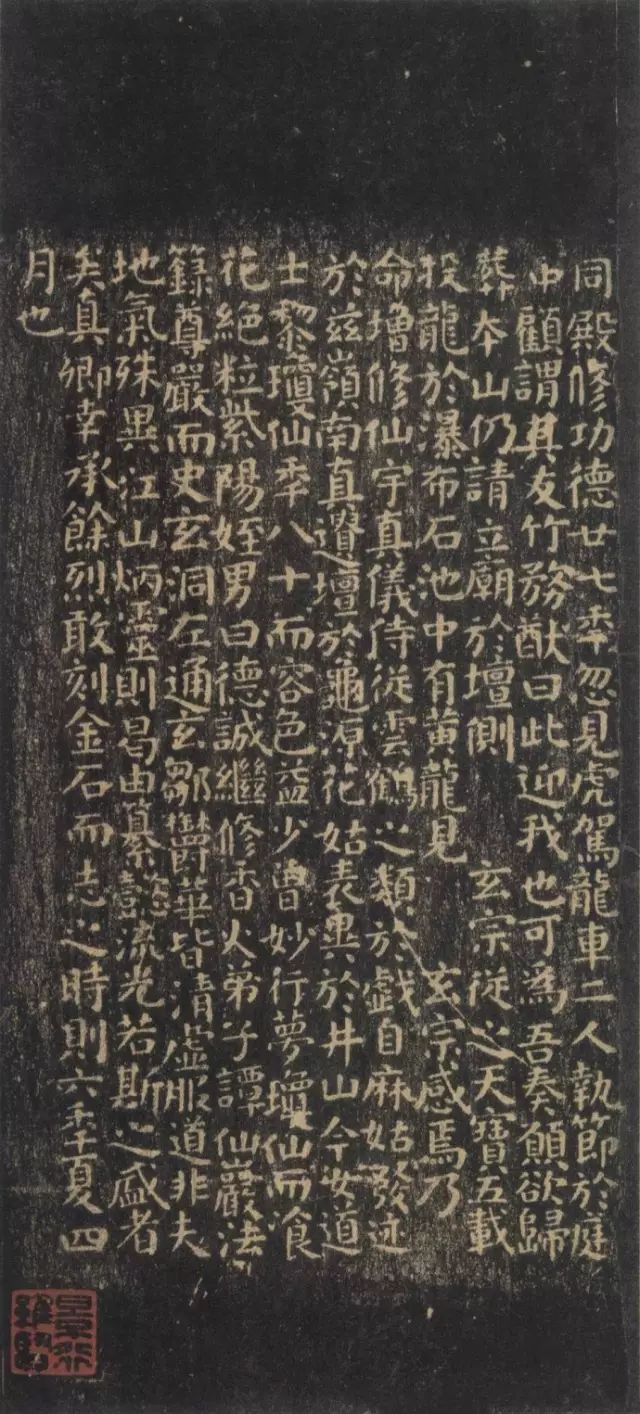 同殿修功德廿七秊忽見虎駕龍車二人執節於庭
中顧謂其友竹務猷曰此迎我也可為吾奏願欲歸
葬本山仍請立廟於壇側 玄宗從之天寶五載
投龍於瀑布石池中有黃龍見 玄宗感焉乃
命增修仙宇真儀侍從雲鶴之類於戲自麻姑發迹
於茲嶺南真遺壇於龜源花姑表異於井山今女道
士黎瓊仙秊八十而容色益少曾妙行夢瓊仙而飡
花絕粒紫陽姪男曰德誠繼修香火弟子譚仙巖法
籙尊嚴而史玄洞左通玄鄒欝華皆清虛服道非夫
地氣殊異江山炳靈則曷由纂懿流光若斯之盛者
矣真卿幸承餘烈敢刻金石而志之時則六秊夏四
月也